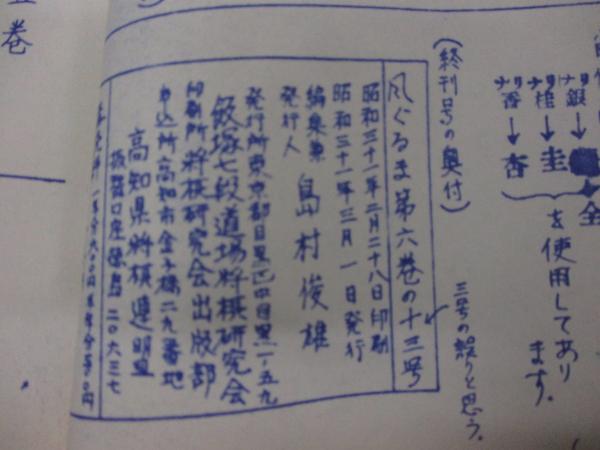 ナリ銀→全
ナリ桂→圭
ナリ香→杏
を使用してあり
ます。
(終刊号の奥付)
三号の誤りと思う。
風ぐるま第六巻の十三号
昭和三十一年二月二十八日印刷
昭和三十一年三月一日発行
編集兼
発行人
島村俊雄
発行所東京都目黒区中目黒一ノ五九
飯塚七段道場将棋研究会
印刷所将棋研究会出版部
申込所高知市金子橋二九番地
高知県将棋連盟
振替口座徳島二〇六三七
巻